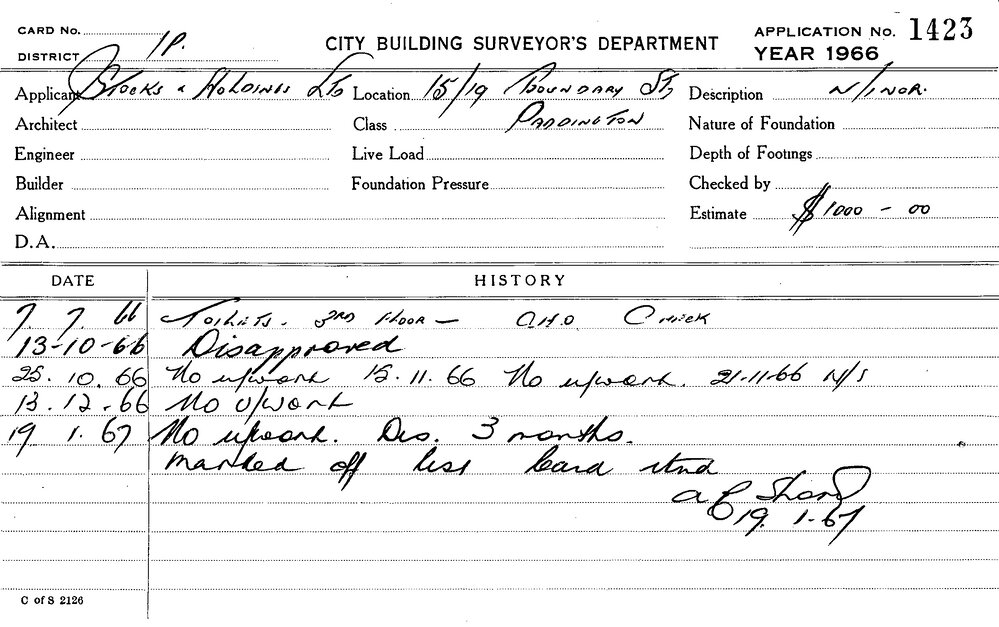 CARD No.
DISTRICT 1P.
CITY BUILDING SURVEYOR'S DEPARTMENT
APPLICATION No. 1423
YEAR 1966
Applicant Stocks & Holdings Ltd Location 15/19 Boundary St, Description N/INOR.
Architect Class Paddington Nature of Foundation
Engineer Live Load Depth of Footings
Builder Foundation Pressure Checked by
Alignment Estimate $1000 - 00
D.A.
DATE HISTORY
7. 7. 66 Toilets. 3RD Floor — O.H.O Check
13-10-66 Disapproved
25. 10. 66 No u/work 15.11.66 No u/work. 21-11-66 N/S
13. 12. 66 No u/work
19 1. 67 No u/work. Dis. 3 months.
marked off list card
19. 1-67
C of S 2126